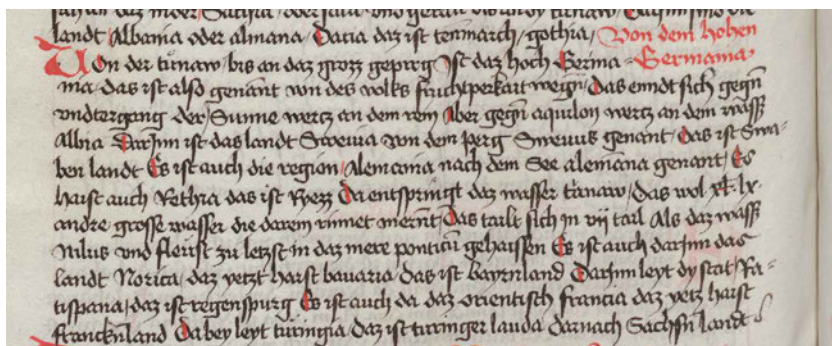 landt Albania oder almana / Dacia daz ist tenmarch / gothia / Von dem hohen
Von der tunaw / bis an daz grozz gepirg Ist daz hoch Germa= Germania
nia das ist also genant von des volks fruchtperkait wegn / Das enndt sich gegn
vndtergang der Sunne wertz an dem rein Aber gegn aquilon wertz an dem wass
Albia Darjnn ist das landt Swevia von dem perg Swevus genant / Das ist Swa=
ben landt Es ist auch die region / Alemania nach dem See alemana genant / Es
haist auch Rethia das ist Ryezz Da entspringt daz wasser tunaw / das wol xl. lx.
andre grosse wasser die darein rinnet mernt Das tailt sich jn vij tail Als daz wass
Nilus vnd fleust zu letzst in daz mere ponticu gehaissen Es ist auch darjnn das
landt Norica / daz yetzt haist bauaria / das ist bayrnland Darjnn leyt dy stat / Ra=
tispana / daz ist regenspurg Es ist auch da daz orientisch francia daz yetz haist
franckenland Dabey leyt turingia / daz ist turinger lannda darnach Sachsn landt